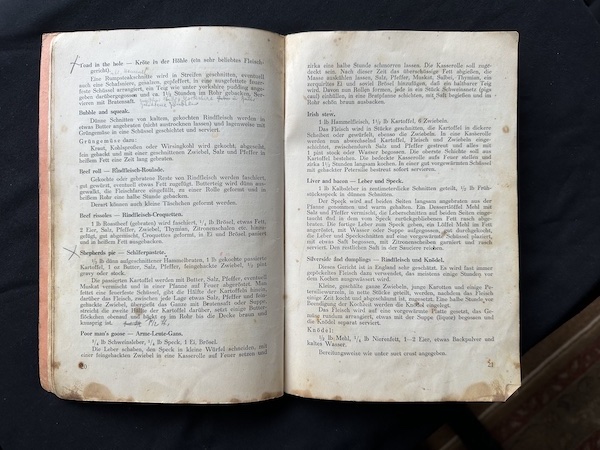 Toad in the hole — Kröte in der Höhle (ein sehr beliebtes Fleisch-
gericht).
Eine Rumpsteakschnitte wird in Streifen geschnitten, eventuell
auch eine Schafsniere, gesalzen, gepfeffert, in eine ausgefettete feuer-
feste Schüssel arrangiert, ein Teig wie unter yorkshire pudding ange-
geben darübergegossen und ca. 1½ Stunden im Rohr gebacken. Ser-
vieren mit Bratensaft.
Bubble and squeak.
Dünne Schnitten von kaltem, gekochten Rindfleisch werden in
etwas Butter angebraten (nicht austrocknen lassen) und lagenweise mit
Grüngemüse in eine Schüssel geschichtet und serviert.
Grüngemüse dazu:
Kraut, Kohlsprossen oder Wirsingkohl wird gekocht, abgeseiht,
fein gehackt und mit einer geschnittenen Zwiebel, Salz und Pfeffer in
heißem Fett eine Zeit lang gebraten.
Beef roll — Rindfleisch-Roulade.
Gekochte oder gebratene Reste von Rindfleisch werden faschiert,
gut gewürzt, eventuell etwas Fett zugefügt. Butterteig wird dünn aus-
gewalkt, die Fleischfarce eingefüllt, zu einer Rolle geformt und in
heißem Rohr eine halbe Stunde gebacken.
Derart können auch kleine Täschchen geformt werden.
Beef rissoles — Rindfleisch-Croquetten.
1 lb Roastbeef (gebraten) wird faschiert, ¼ lb Brösel, etwas Fett,
2 Eier, Salz, Pfeffer, Zwiebel, Thymian, Zitronenschalen etc. hinzu-
gefügt, gut abgemischt, Croquettes geformt, in Ei und Brösel paniert
und in heißem Fett ausgebacken.
Shepherds pie — Schäferpastete.
½ lb dünn aufgeschnittener Hammelbraten, 1 lb gekochte passierte
Kartoffel, 1 oz Butter, Salz, Pfeffer, feingehackte Zwiebel, ½ pint
gravy oder stock.
Die passierten Kartoffel werden mit Butter, Salz, Pfeffer, eventuell
Muskat vermischt und in einer Pfanne auf Feuer abgeröstet. Man
fettet eine feuerfeste Schüssel, gibt die Hälfte der Kartoffeln hinein,
darüber das Fleisch, zwischen jede Lage etwas Salz, Pfeffer und fein-
gehackte Zwiebel, übergießt das Ganze mit Bratensaft oder Suppe,
streicht die zweite Hälfte der Kartoffel darüber, gibt einige Butter-
flöckchen obenauf und bäckt es im Rohr bis die Decke braun und
knusprig ist.
Poor man's goose — Arme-Leute-Gans.
¾ lb Schweinsleber, ¼ lb Speck, 1 Ei, Brösel.
Die Leber schaben, den Speck in kleine Würfel schneiden, mit
einer feingehackten Zwiebel in eine Kasserolle auf Feuer setzen und
20
zirka eine halbe Stunde schmoren lassen. Die Kasserolle soll zuge-
deckt sein. Nach dieser Zeit das überschüssige Fett abgießen, die
Masse auskühlen lassen, Salz, Pfeffer, Muskat, Salbei, Thymian, ein
verquirltes Ei und soviel Brösel hinzufügen, daß ein haltbarer Teig
wird. Davon nun Rollen formen, jede in ein Stück Schweinsnetz (pigs
caul) einfüllen, in eine Bratpfanne schichten, mit Saft begießen und im
Rohr schön braun ausbacken.
Irish stew.
1 lb Hammelfleisch, 1½ lb Kartoffel, 6 Zwiebeln.
Das Fleisch wird in Stücke geschnitten, die Kartoffel in dickere
Scheiben oder gewürfelt, ebenso die Zwiebeln. In eine Kasserolle
werden nun abwechselnd Kartoffel, Fleisch und Zwiebeln einge-
schichtet, zwischendurch Salz und Pfeffer gestreut und alles mit
1 pint stock oder Wasser begossen. Die oberste Schichte soll aus
Kartoffel bestehen. Die bedeckte Kasserolle aufs Feuer stellen und
zirka 1½ Stunden langsam kochen. In einer gut vorgewärmten Schüssel
mit gehackter Petersilie bestreut sofort servieren.
Liver and bacon — Leber und Speck.
1 lb Kalbsleber in zentimeterdicke Schnitten geteilt, ½ lb Früh-
stücksspeck in dünnen Schnitten.
Der Speck wird auf beiden Seiten langsam angebraten aus der
Pfanne genommen und warm gehalten. Ein Dessertlöffel Mehl mit
Salz und Pfeffer vermischt, die Leberschnitten auf beiden Seiten einge-
taucht und in dem vom Speck zurückgebliebenen Fett rasch abge-
braten. Die fertige Leber zum Speck geben, ein Löffel Mehl im Fett
angeröstet, mit Wasser oder Suppe aufgegossen, gut durchgekocht,
die Leber und Speckschnitten auf eine vorgewärmte Schüssel placiert
mit etwas Saft begossen, mit Zitronenscheiben garniert und rasch
serviert. Den restlichen Saft in der Sauciere reichen.
Silverside and dumplings — Rindfleisch und Knödel.
Dieses Gericht ist in England sehr geschätzt. Es wird fast immer
gepökeltes Fleisch dazu verwendet, das mindestens einige Stunden vor
dem Kochen ausgewässert wird.
Kleine, geschälte ganze Zwiebeln, junge Karotten und einige Peter-
silienwurzeln, in nette Stücke geteilt, werden, nachdem das Fleisch
einige Zeit kocht und abgeschäumt ist, zugesetzt. Eine halbe Stunde vor
Beendigung der Kochzeit werden die Knödel eingelegt.
Das Fleisch wird auf eine vorgewärmte Platte gesetzt, das Ge-
müse rundum arrangiert, etwas mit der Suppe (liquor) begossen und die
Knödel separat serviert.
Knödel:
½ lb Mehl, ¼ lb Nierenfett, 1—2 Eier, etwas Backpulver und
kaltes Wasser.
Bereitungsweise wie unter suet crust angegeben.
21